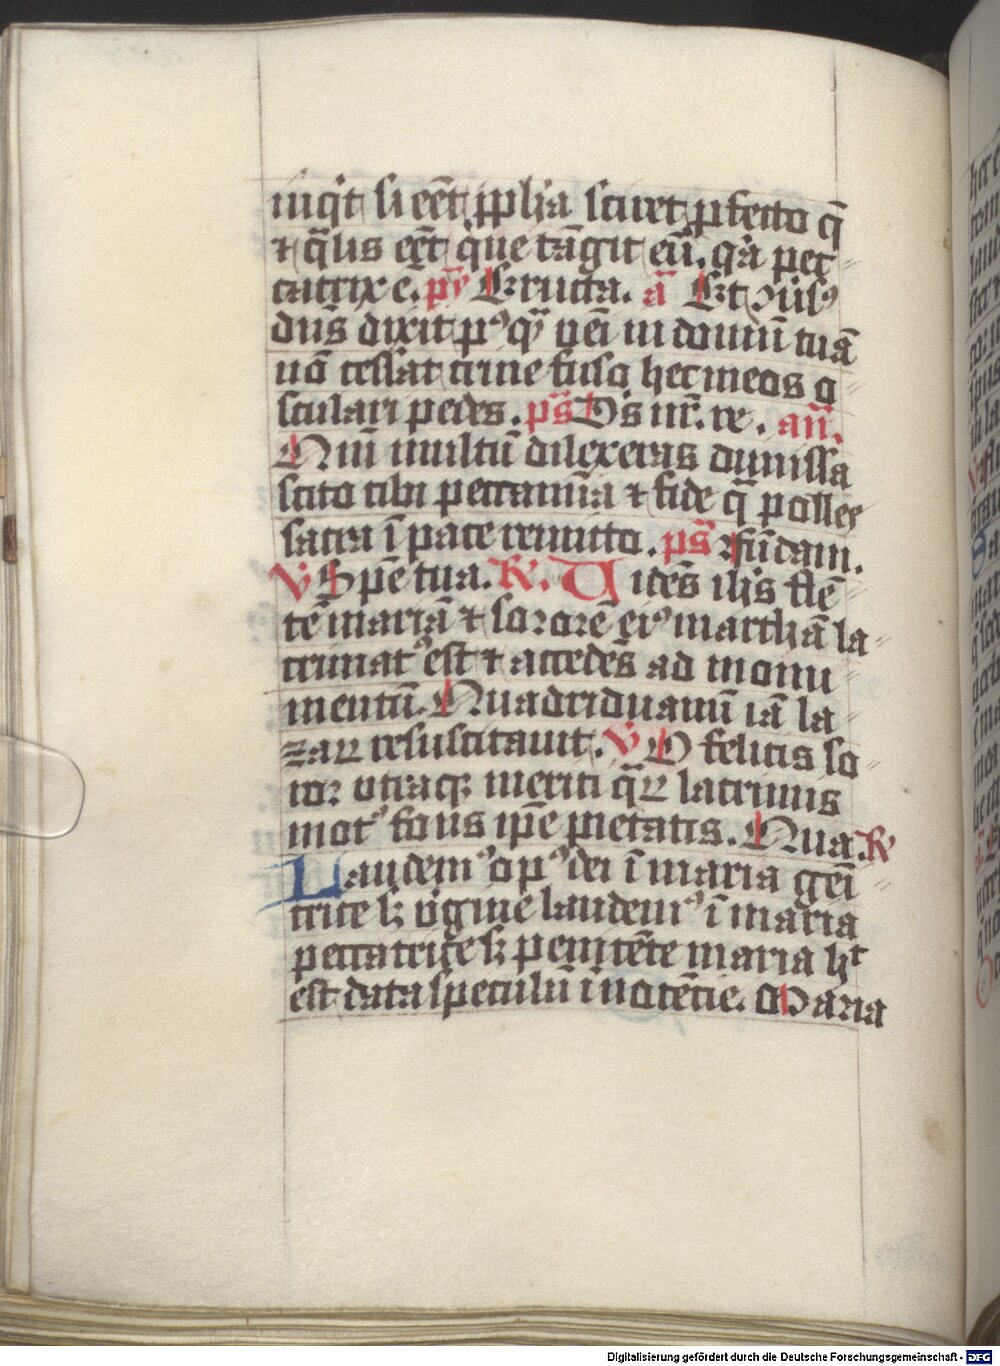 inqͥt si eēt ꝓpha sciret ꝓfecto q̄
⁊ q̄lis eēt q̄ue tāgit eū. qͥa pec
catrix ē. pꝰ Eructa. a᷈ Et ꝯuersꝰ
dn̄s dixit pꝰ qͣ veī in domū tuā
nō cessat crine fuso hec meos o
sculari pedes. ps̄ Ds nr̄. re. an̄.
Nim̄ multū dilexeras dimissa
scito tibi peccamīa ⁊ fide q̄ posses
satra ī pace remitto. ps̄ Fūdam.
V Spē tua. R. Uidēs ihs flē
tē mariā ⁊ sororē eiꝰ marthā la
crimatꝰ est ⁊ accedēs ad monu
mentū. Quadriduanū iā la
zaꝝ resuscitauit. V O felicis so
ror vtraqꝫ meriti qͣꝝ lacrimis
motꝰ fons ip̄e pietatis. Qua. R
Laudemꝰ opꝰ dei ī maria geī
trice sꝫ v̓gine laudemꝰ ī maria
peccatrice sꝫ penitēte maria hͭ
est data speculū īnocētie. Maria
Digitalisierung gefördert durch die Deutsche Forschungsgemeinschaft - DFG